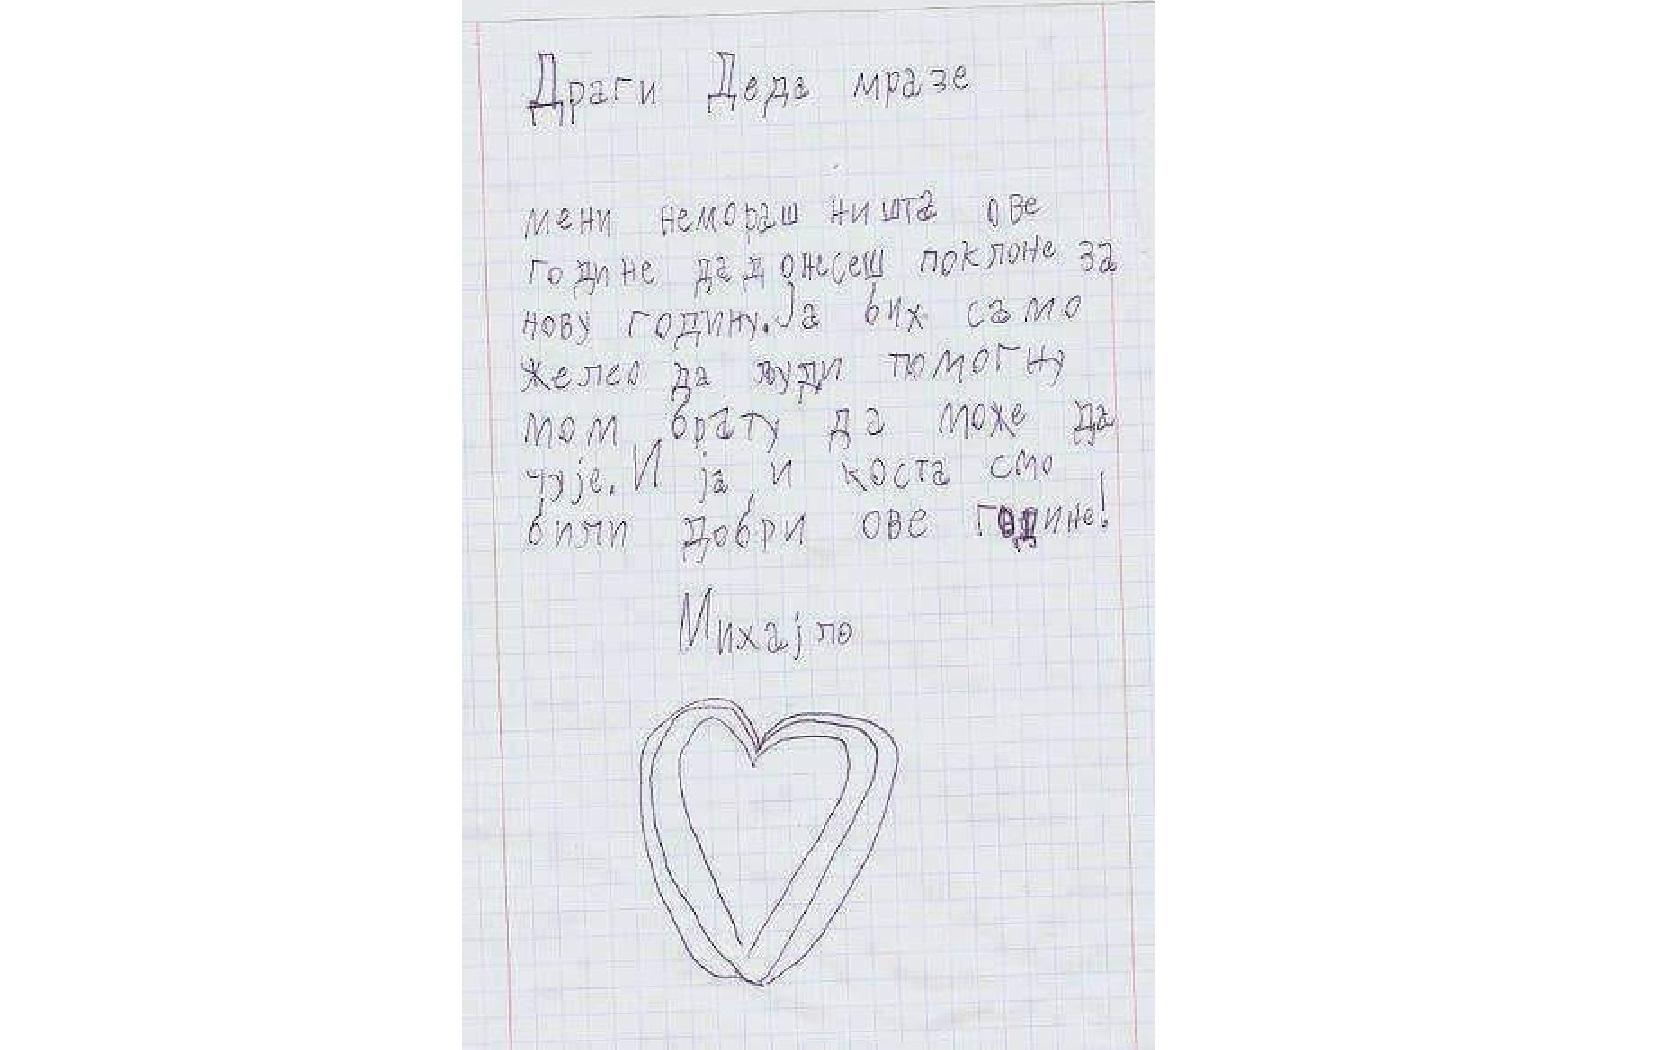 Драги Деда мразе
мени немораш ништа ове
године да донесеш поклоне за
нову годину. Ја бих само
желео да људи помогну
мом брату да може да
чује. И ја и коста смо
били добри ове године!
Михајло